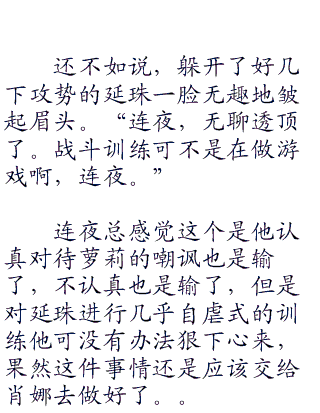 还不如说，躲开了好几
下攻势的延珠一脸无趣地皱
起眉头。“连夜，无聊透顶
了。战斗训练可不是在做游
戏啊，连夜。”
连夜总感觉这个是他认
真对待萝莉的嘲讽也是输
了，不认真也是输了，但是
对延珠进行几乎自虐式的训
练他可没有办法狠下心来，
果然这件事情还是应该交给
肖娜去做好了。。